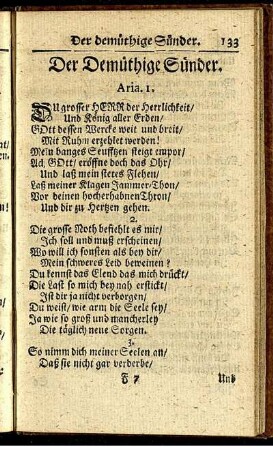 Der demüthige Sünder. 133
Der Demüthige Sünder.
Aria. 1.
DU grosser HERR der Herrlichkeit/
Und König aller Erden/
GOtt dessen Wercke weit und breit/
Mit Ruhm erzehlet werden!
Mein banges Seufftzen steigt empor/
Ach GOtt/ eröffne doch das Ohr/
Und laß mein stetes Flehen/
Laß meiner Klagen Jammer-Thon/
Vor deinen hocherhabnen Thron/
Und dir zu Hertzen gehen.
2.
Die grosse Noth befiehlt es mir/
Ich soll und muß erscheinen/
Wo will ich sonsten als bey dir/
Mein schweres Leid beweinen?
Du kennst das Elend das mich drückt/
Die Last so mich bey nah erstickt/
Ist dir ja nicht verborgen/
Du weist/ wie arm die Seele sey/
Ja wie so groß und mancherley
Die täglich neue Sorgen.
3.
So nimm dich meiner Seelen an/
Daß sie nicht gar verderbe/
F 7 Und